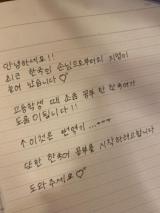 안녕하세요!!
최근 한국의 손님으로부터의 지명이
늘어 났습니다♡
고등학생 때 조금 공부 한 한국어가
도움이 됩니다!!
이것은 번역기....
또한 한국어 공부를 시작하려고합니다
도와주세요♡